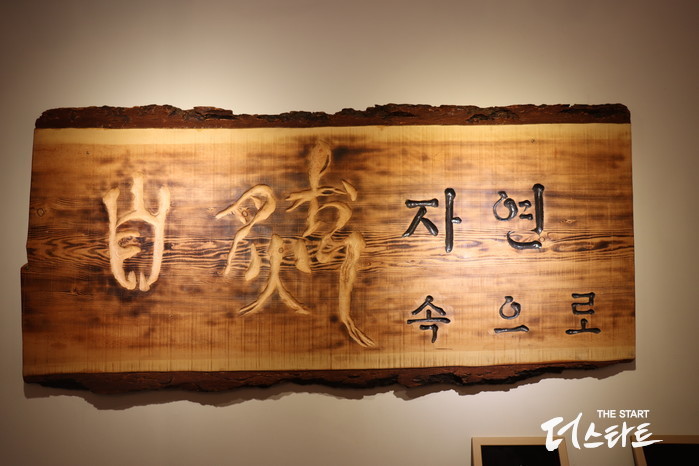 자연
속으로
THE START
더스타트